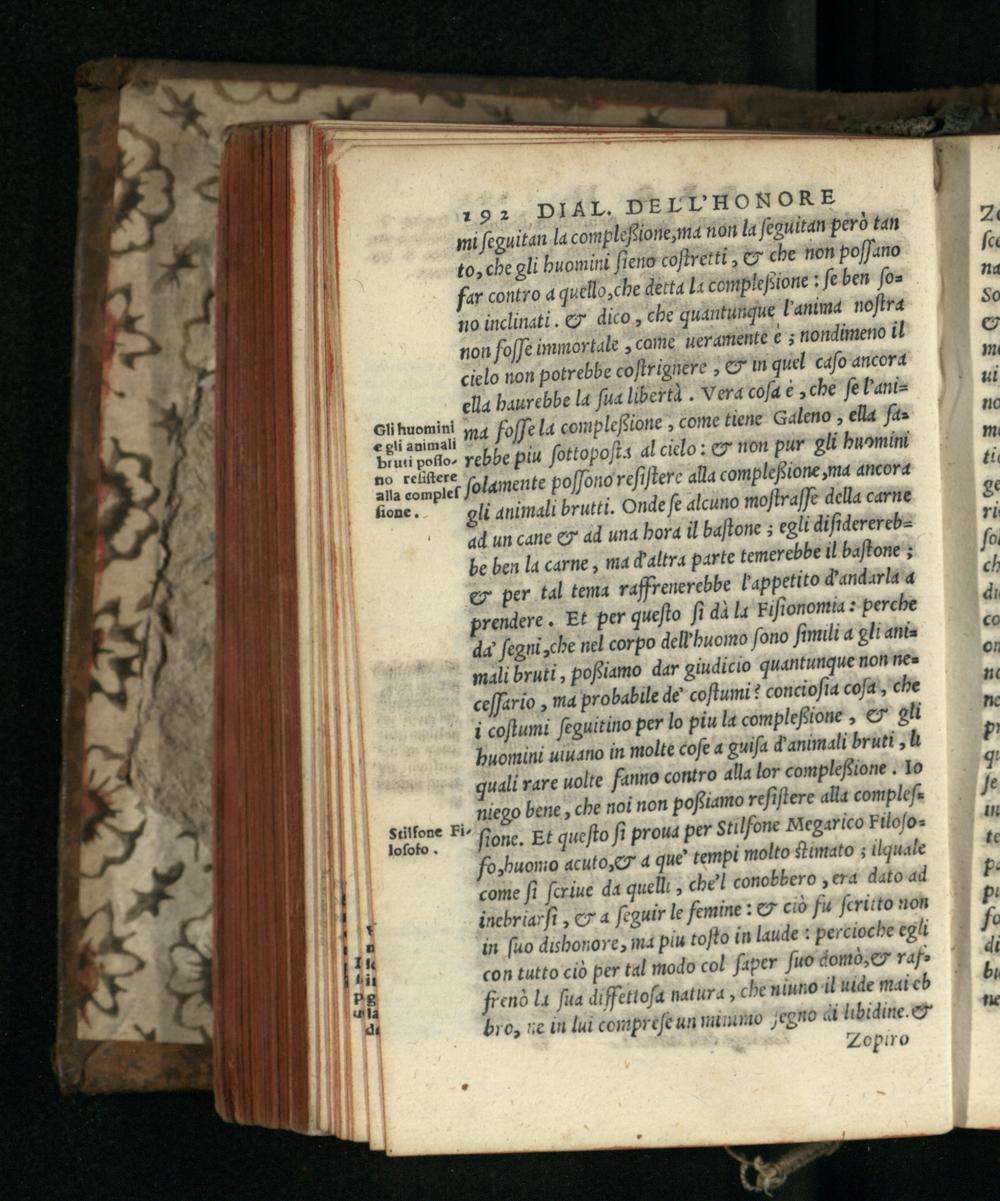 192 DIAL. DELL'HONORE
mi ſeguitan la compleßione, ma non la ſeguitan però tan
to, che gli huomini ſieno coſtretti, & che non poſſano
far contro a quello, che detta la compleßione: ſe ben ſo=
no inclinati. & dico, che quantunque l'anima noſtra
non foſſe immortale, come ueramente è; nondimeno il
cielo non potrebbe coſtrignere, & in quel caſo ancora
ella haurebbe la ſua libertà. Vera coſa è, che ſe l'ani=
ma foſſe la compleßione, come tiene Galeno, ella ſa=
rebbe piu ſottopoſta al cielo: & non pur gli huomini
ſolamente poſſono reſiſtere alla compleßione, ma ancora
gli animali brutti. Onde ſe alcuno moſtraſſe della carne
ad un cane & ad una hora il baſtone; egli diſiderereb=
be ben la carne, ma d'altra parte temerebbe il baſtone;
& per tal tema raffrenerebbe l'appetito d'andarla a
prendere. Et per queſto ſi dà la Fiſionomia: perche
da' ſegni, che nel corpo dell'huomo ſono ſimili a gli ani=
mali bruti, poßiamo dar giudicio quantunque non ne=
ceſſario, ma probabile de' coſtumi? concioſia coſa, che
i coſtumi ſeguitino per lo piu la compleßione, & gli
huomini uiuano in molte coſe a guiſa d'animali bruti, li
quali rare uolte fanno contro alla lor compleßione. Io
niego bene, che noi non poßiamo reſiſtere alla compleſ=
ſione. Et queſto ſi proua per Stilfone Megarico Filoſo=
fo, huomo acuto, & a que' tempi molto ſtimato; ilquale
come ſi ſcriue da quelli, che'l conobbero, era dato ad
inebriarſi, & a ſeguir le femine: & ciò fu ſcritto non
in ſuo dishonore, ma piu toſto in laude: percioche egli
con tutto ciò per tal modo col ſaper ſuo domò, & raf=
frenò la ſua diffettoſa natura, che niuno il uide mai eb
bro, ne in lui compreſe un minimo ſegno di libidine. &
Zopiro
Gli huomini
e gli animali
bruti poſſo-
no reſiſtere
alla compleſ
ſione.
Stilfone Fi-
loſofo.